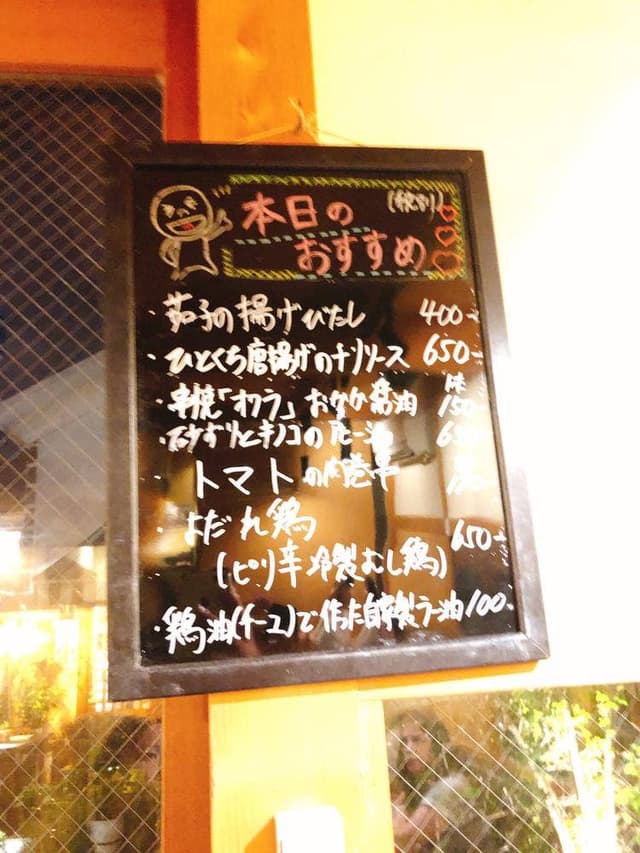 本日の (税別)
おすすめ
・茄子の揚げびたし 400-
・ひとくち唐揚げのチリソース 650-
・串焼「オクラ」おかか醤油 1本 150-
・砂ずりとキノコの 650-
・トマトの肉巻串
・よだれ鶏 650-
(ピリ辛冷製むし鶏)
・鶏油(チーユ)で作った自家製ラー油 100-